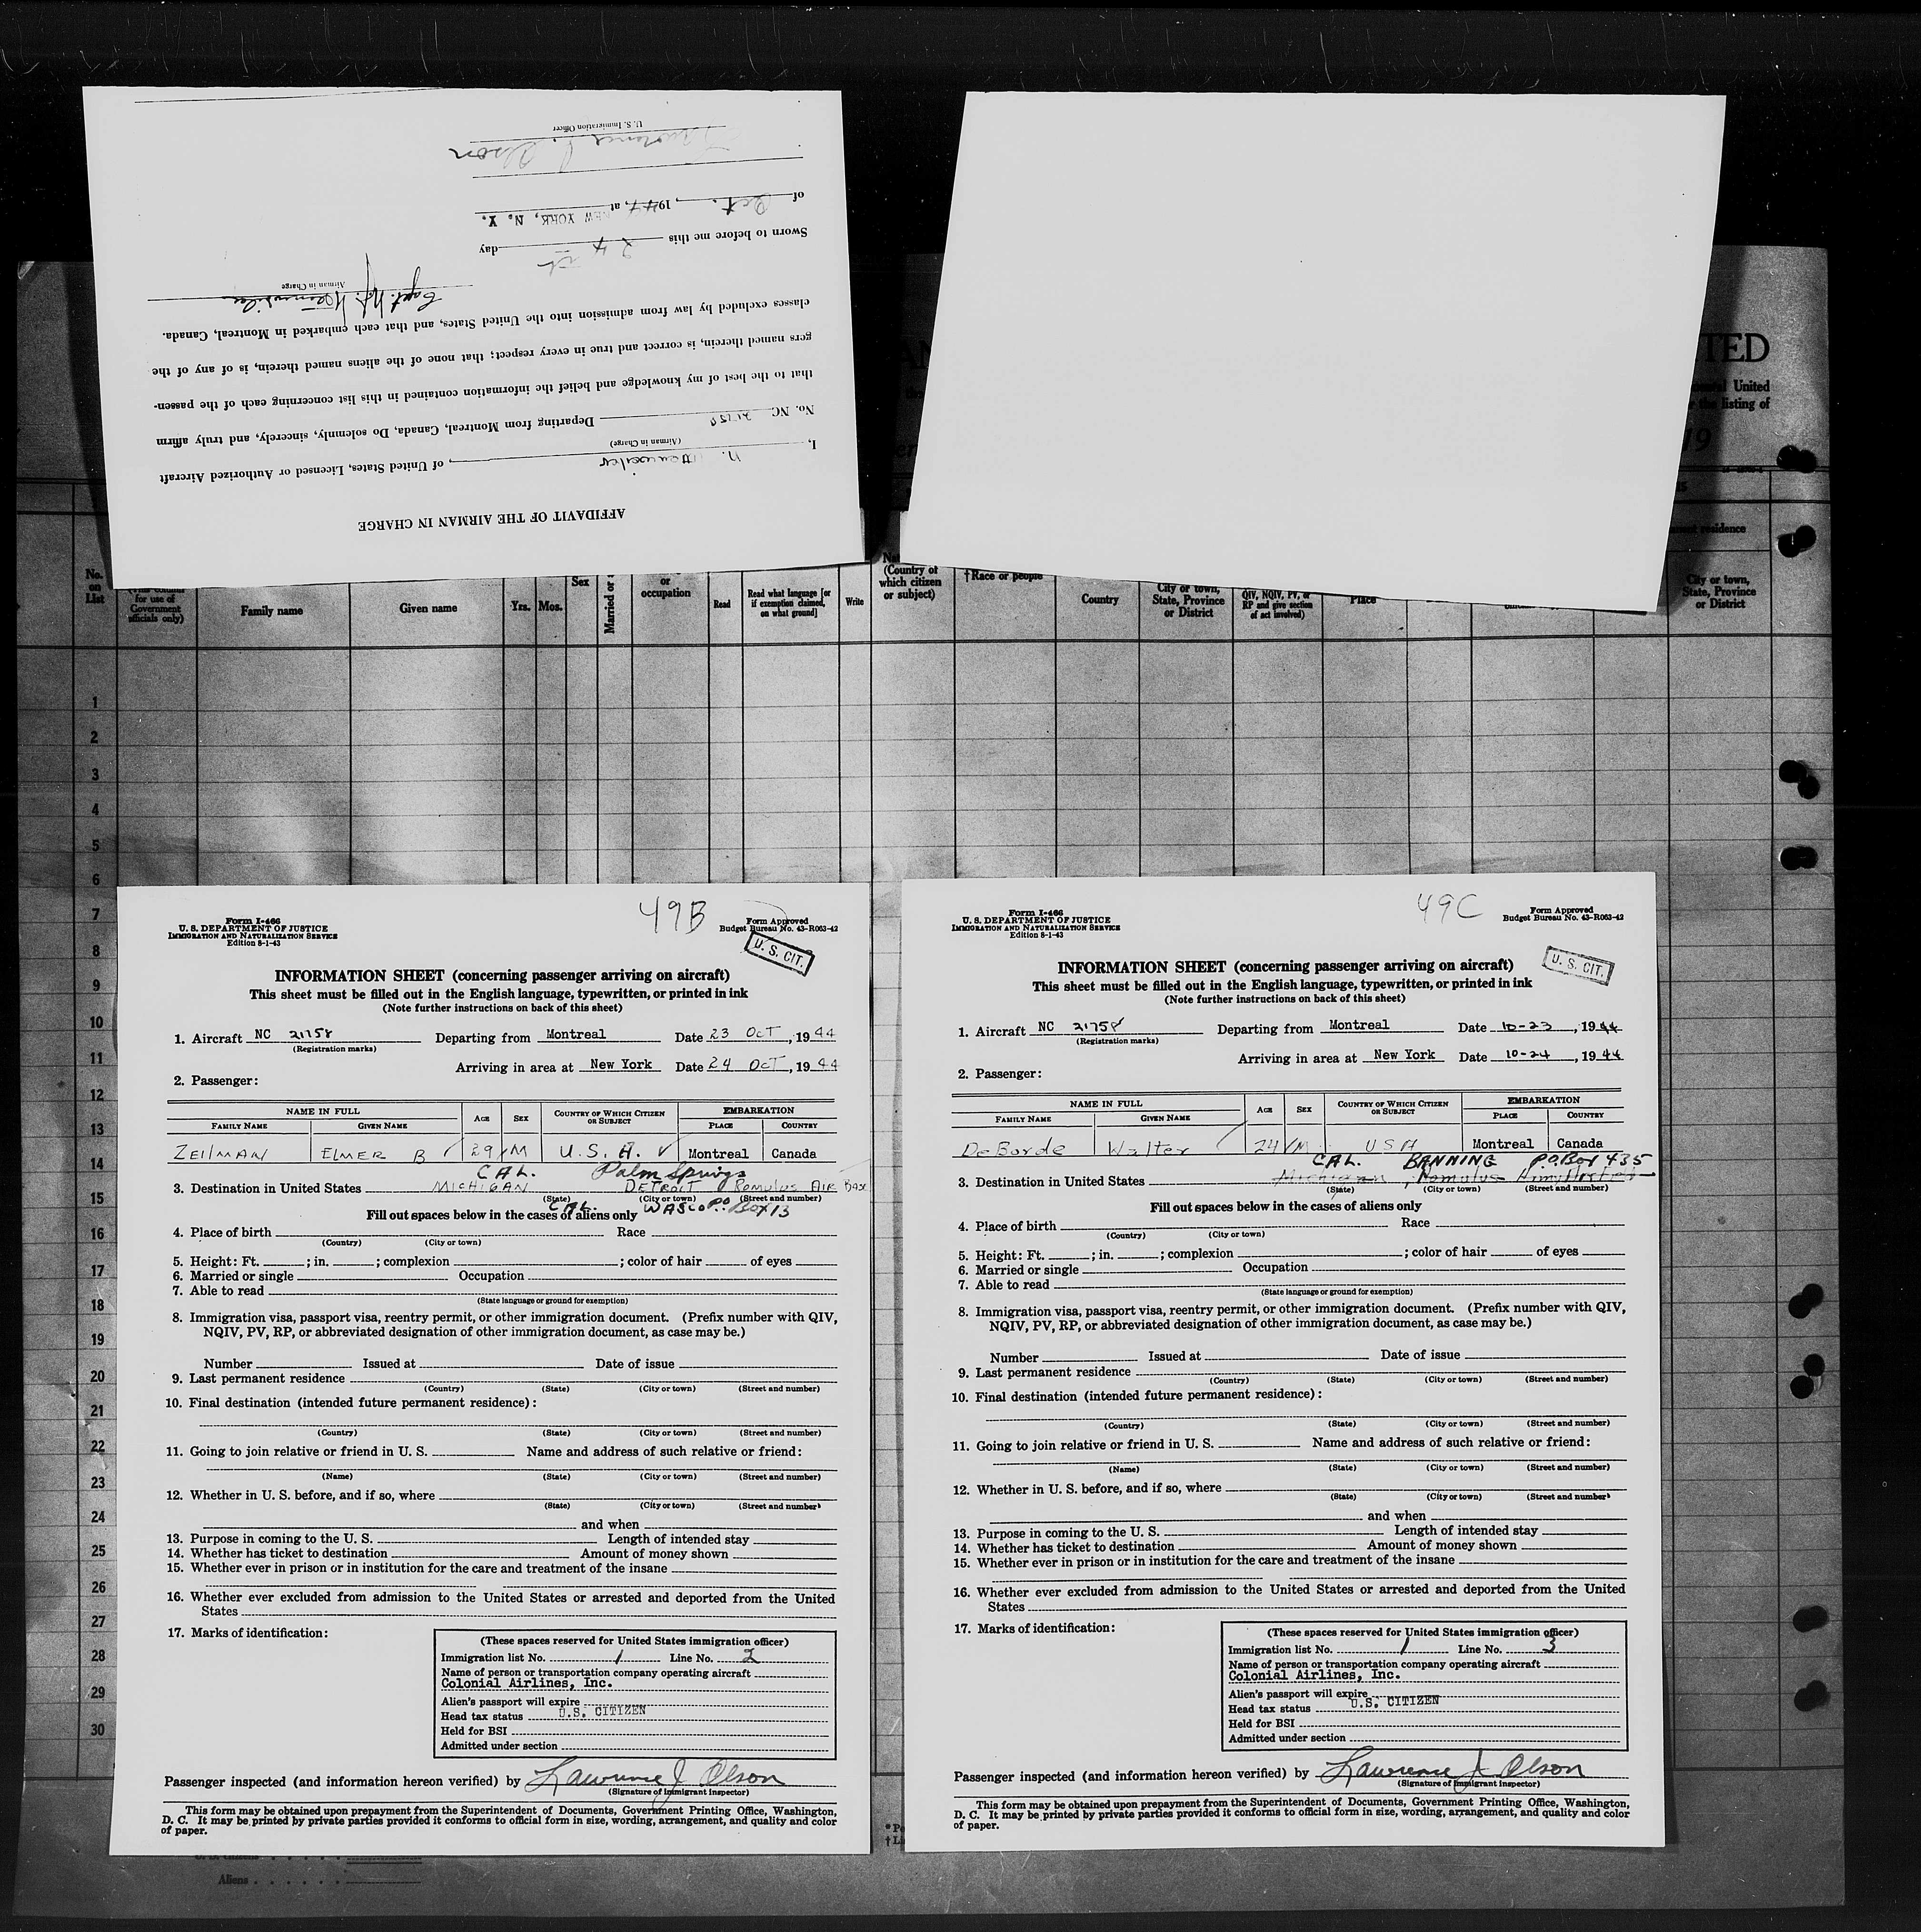 AFFIDAVIT OF THE AIRMAN IN CHARGE
I, N. , of United States, Licensed or Authorized Aircraft
(Airman in Charge)
No. NC 21758 Departing from Montreal, Canada, Do solemnly, sincerely, and truly affirm
that to the best of my knowledge and belief the information contained in this list concerning each of the passen-
gers named therein, is correct and true in every respect; that none of the aliens named therein, is of any of the
classes excluded by law from admission into the United States, and that each embarked in Montreal, Canada.
Capt.
Airman in Charge
Sworn to before me this 24th day
of Oct. , 1944, at NEW YORK, N. Y.
Lawrence J. Olson
U. S. Immigration Officer
TED
United
the listing of
19
residence
No. on List
for use of Government officials only)
Family name
Given name
Yrs.
Mos.
Sex
Married or
or occupation
Read
Read what language [or if exemption claimed, on what ground]
Write
(Country of which citizen or subject)
†Race or people
Country
City or town, State, Province or District
QIV, NQIV, PV, or RP and give section of act involved)
Place
City or town, State, Province or District
1
2
3
4
5
6
7
8
9
10
11
12
13
14
15
16
17
18
19
20
21
22
23
24
25
26
27
28
29
30
Aliens
49B
Form I-466
U. S. DEPARTMENT OF JUSTICE
IMMIGRATION AND NATURALIZATION SERVICE
Edition 8-1-43
Form Approved
Budget Bureau No. 43-R063-42
U. S. CIT.
INFORMATION SHEET (concerning passenger arriving on aircraft)
This sheet must be filled out in the English language, typewritten, or printed in ink
(Note further instructions on back of this sheet)
1. Aircraft NC 21758 Departing from Montreal Date 23 OCT, 1944
(Registration marks)
Arriving in area at New York Date 24 OCT, 1944
2. Passenger:
NAME IN FULL AGE SEX COUNTRY OF WHICH CITIZEN OR SUBJECT EMBARKATION
FAMILY NAME GIVEN NAME PLACE COUNTRY
ZEILMAN ELMER B 29 M U.S.A. Montreal Canada
CAL. Palm Springs
3. Destination in United States MICHIGAN DETROIT ROMULUS AIR BASE
(State) (City or town) (Street and number)
CAL. WASCO P.O. BOX 13
Fill out spaces below in the cases of aliens only
4. Place of birth Race
(Country) (City or town)
5. Height: Ft. ; in. ; complexion ; color of hair of eyes
6. Married or single Occupation
7. Able to read
(State language or ground for exemption)
8. Immigration visa, passport visa, reentry permit, or other immigration document. (Prefix number with QIV,
NQIV, PV, RP, or abbreviated designation of other immigration document, as case may be.)
Number Issued at Date of issue
9. Last permanent residence
(Country) (State) (City or town) (Street and number)
10. Final destination (intended future permanent residence):
(Country) (State) (City or town) (Street and number)
11. Going to join relative or friend in U. S. Name and address of such relative or friend:
(Name) (State) (City or town) (Street and number)
12. Whether in U. S. before, and if so, where
(State) (City or town) (Street and number)
and when
13. Purpose in coming to the U. S. Length of intended stay
14. Whether has ticket to destination Amount of money shown
15. Whether ever in prison or in institution for the care and treatment of the insane
16. Whether ever excluded from admission to the United States or arrested and deported from the United
States
17. Marks of identification:
(These spaces reserved for United States immigration officer)
Immigration list No. 1 Line No. 2
Name of person or transportation company operating aircraft
Colonial Airlines, Inc.
Alien's passport will expire
Head tax status U.S. CITIZEN
Held for BSI
Admitted under section
Passenger inspected (and information hereon verified) by Lawrence J Olson
(Signature of immigrant inspector)
This form may be obtained upon prepayment from the Superintendent of Documents, Government Printing Office, Washington,
D. C. It may be printed by private parties provided it conforms to official form in size, wording, arrangement, and quality and color
of paper.
49C
Form I-466
U. S. DEPARTMENT OF JUSTICE
IMMIGRATION AND NATURALIZATION SERVICE
Edition 8-1-43
Form Approved
Budget Bureau No. 43-R063-42
U. S. CIT.
INFORMATION SHEET (concerning passenger arriving on aircraft)
This sheet must be filled out in the English language, typewritten, or printed in ink
(Note further instructions on back of this sheet)
1. Aircraft NC 21758 Departing from Montreal Date 10-23, 1944
(Registration marks)
Arriving in area at New York Date 10-24, 1944
2. Passenger:
NAME IN FULL AGE SEX COUNTRY OF WHICH CITIZEN OR SUBJECT EMBARKATION
FAMILY NAME GIVEN NAME PLACE COUNTRY
DeBorde Walter 24 M USA Montreal Canada
CAL. BANNING P.O. Box 435
3. Destination in United States Michigan, Romulus Army
(State) (City or town) (Street and number)
Fill out spaces below in the cases of aliens only
4. Place of birth Race
(Country) (City or town)
5. Height: Ft. ; in. ; complexion ; color of hair of eyes
6. Married or single Occupation
7. Able to read
(State language or ground for exemption)
8. Immigration visa, passport visa, reentry permit, or other immigration document. (Prefix number with QIV,
NQIV, PV, RP, or abbreviated designation of other immigration document, as case may be.)
Number Issued at Date of issue
9. Last permanent residence
(Country) (State) (City or town) (Street and number)
10. Final destination (intended future permanent residence):
(Country) (State) (City or town) (Street and number)
11. Going to join relative or friend in U. S. Name and address of such relative or friend:
(Name) (State) (City or town) (Street and number)
12. Whether in U. S. before, and if so, where
(State) (City or town) (Street and number)
and when
13. Purpose in coming to the U. S. Length of intended stay
14. Whether has ticket to destination Amount of money shown
15. Whether ever in prison or in institution for the care and treatment of the insane
16. Whether ever excluded from admission to the United States or arrested and deported from the United
States
17. Marks of identification:
(These spaces reserved for United States immigration officer)
Immigration list No. 1 Line No. 3
Name of person or transportation company operating aircraft
Colonial Airlines, Inc.
Alien's passport will expire
Head tax status U.S. CITIZEN
Held for BSI
Admitted under section
Passenger inspected (and information hereon verified) by Lawrence J Olson
(Signature of immigrant inspector)
This form may be obtained upon prepayment from the Superintendent of Documents, Government Printing Office, Washington,
D. C. It may be printed by private parties provided it conforms to official form in size, wording, arrangement, and quality and color
of paper.